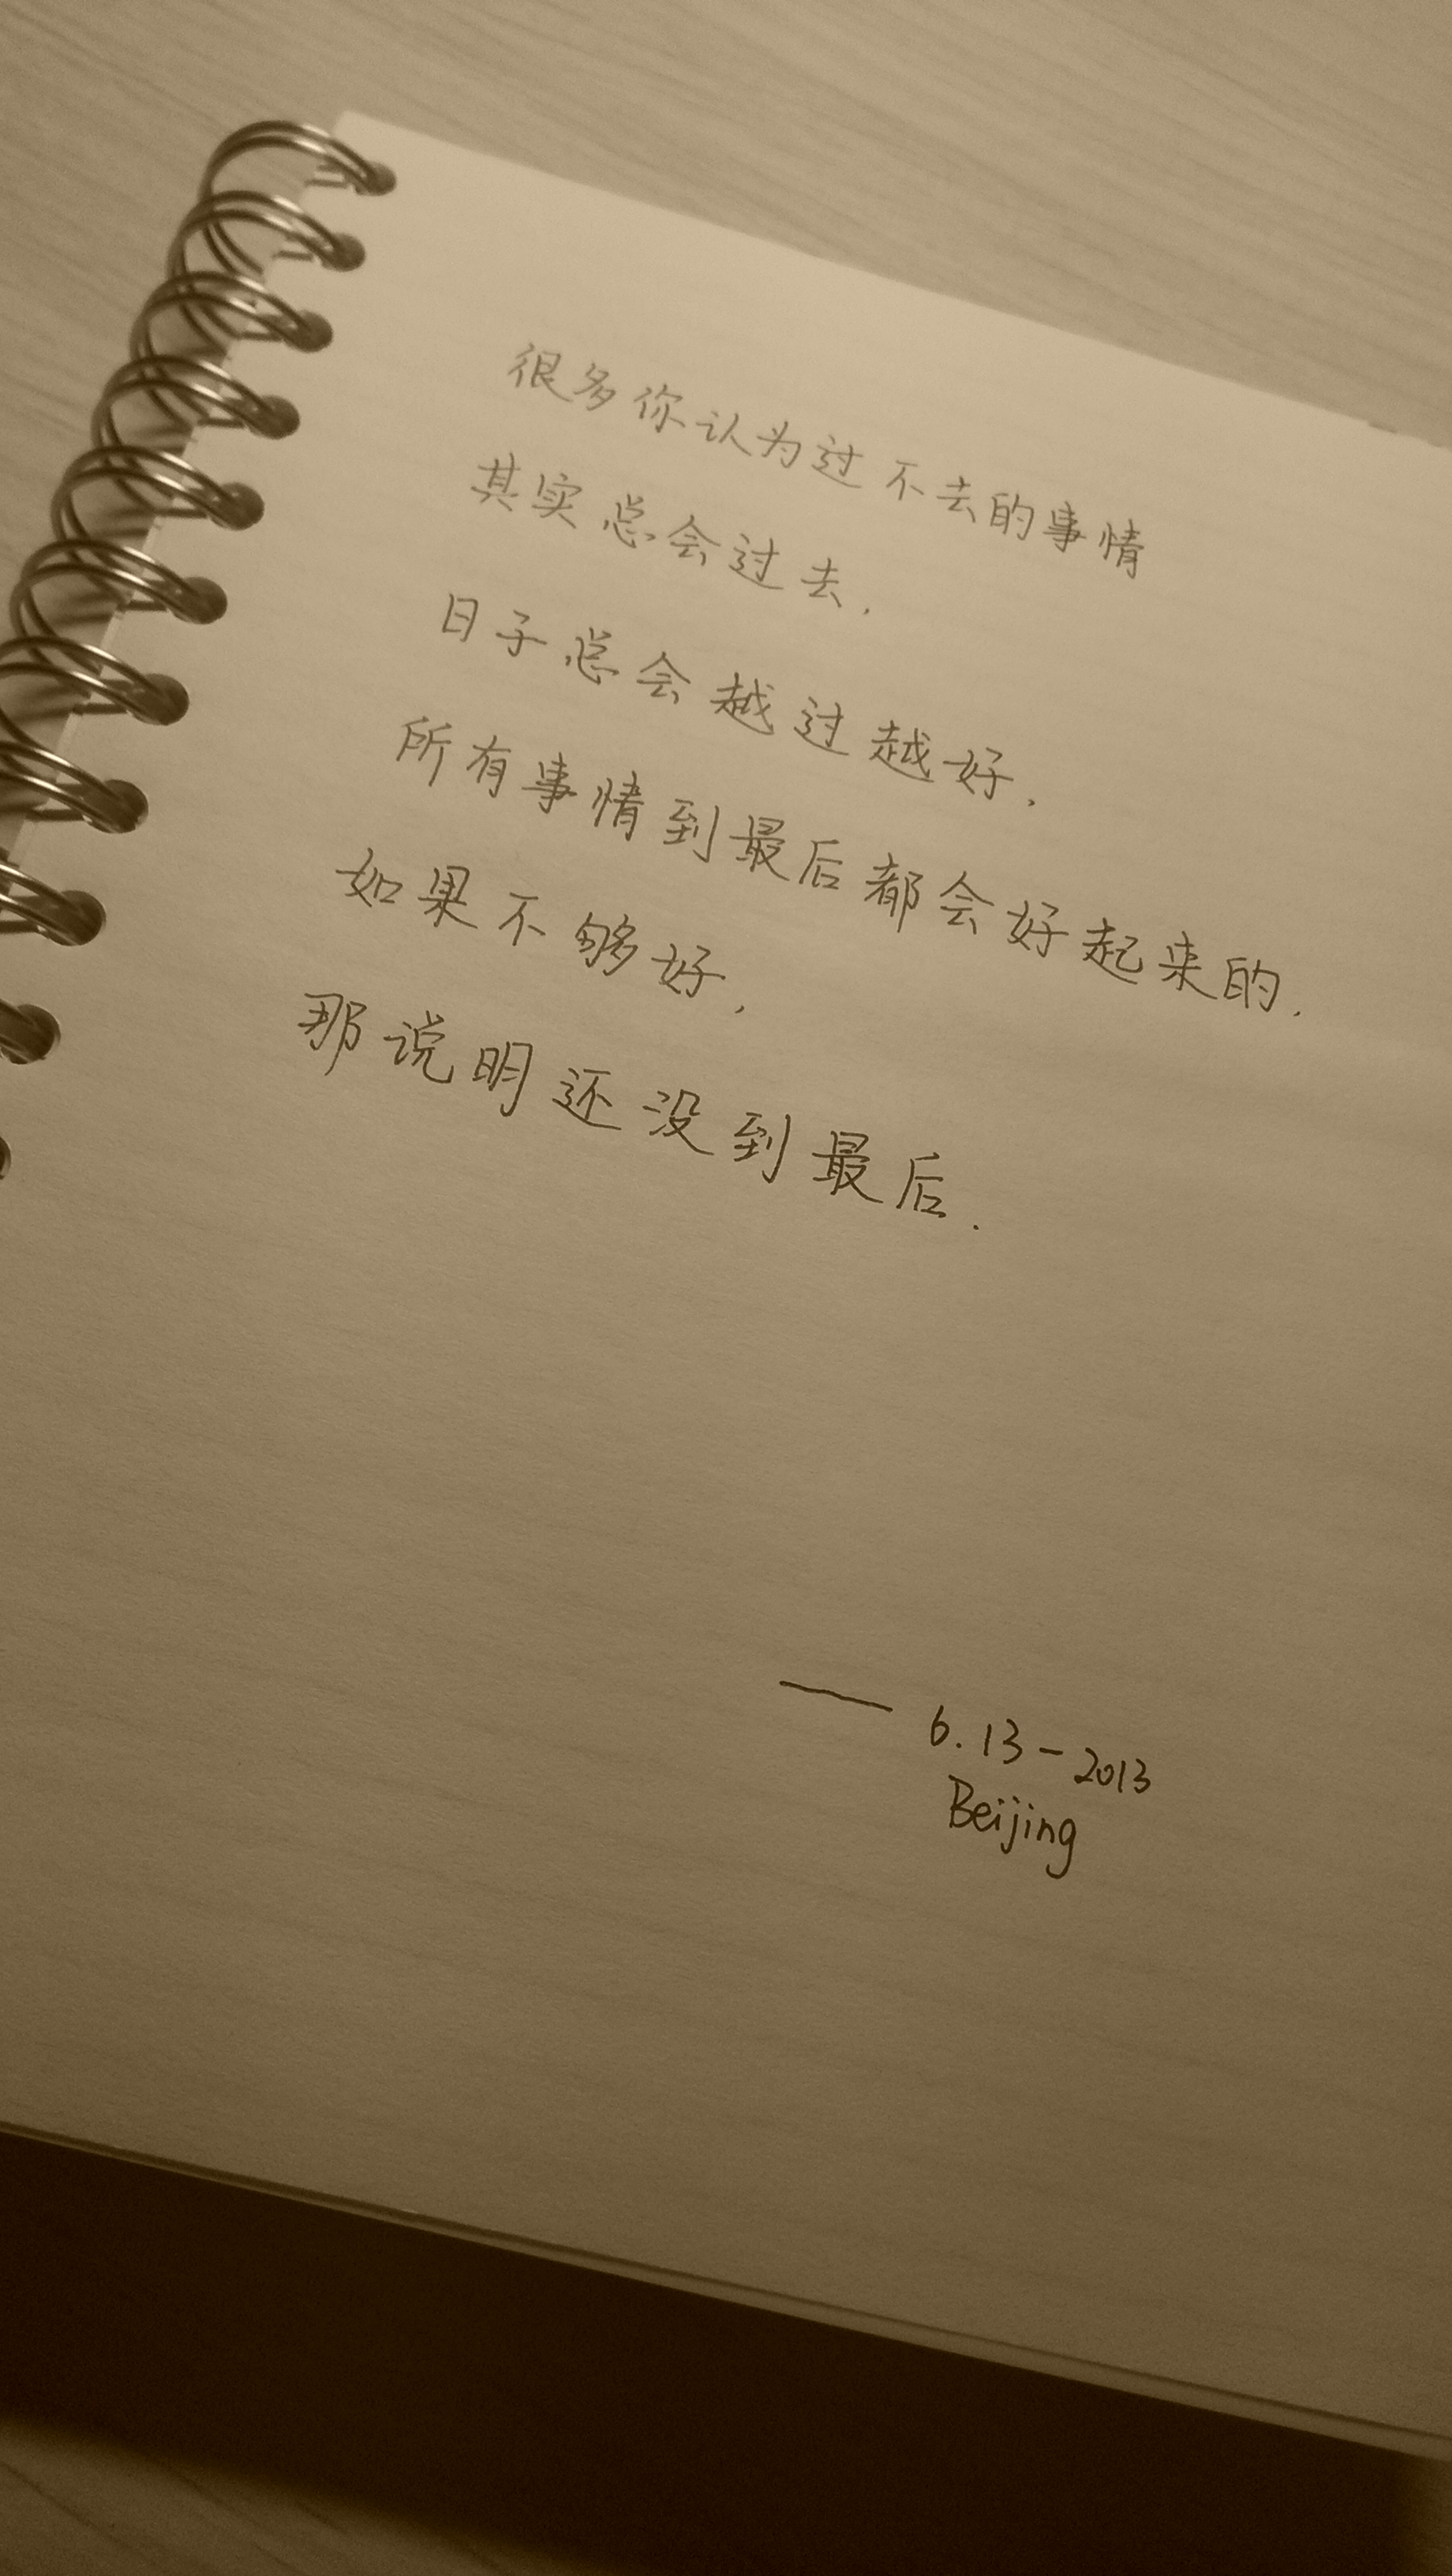 很多你认为过不去的事情
其实总会过去.
日子总会越过越好.
所有事情到最后都会好起来的.
如果不够好,
那说明还没到最后.
—— 6.13-2013
Beijing